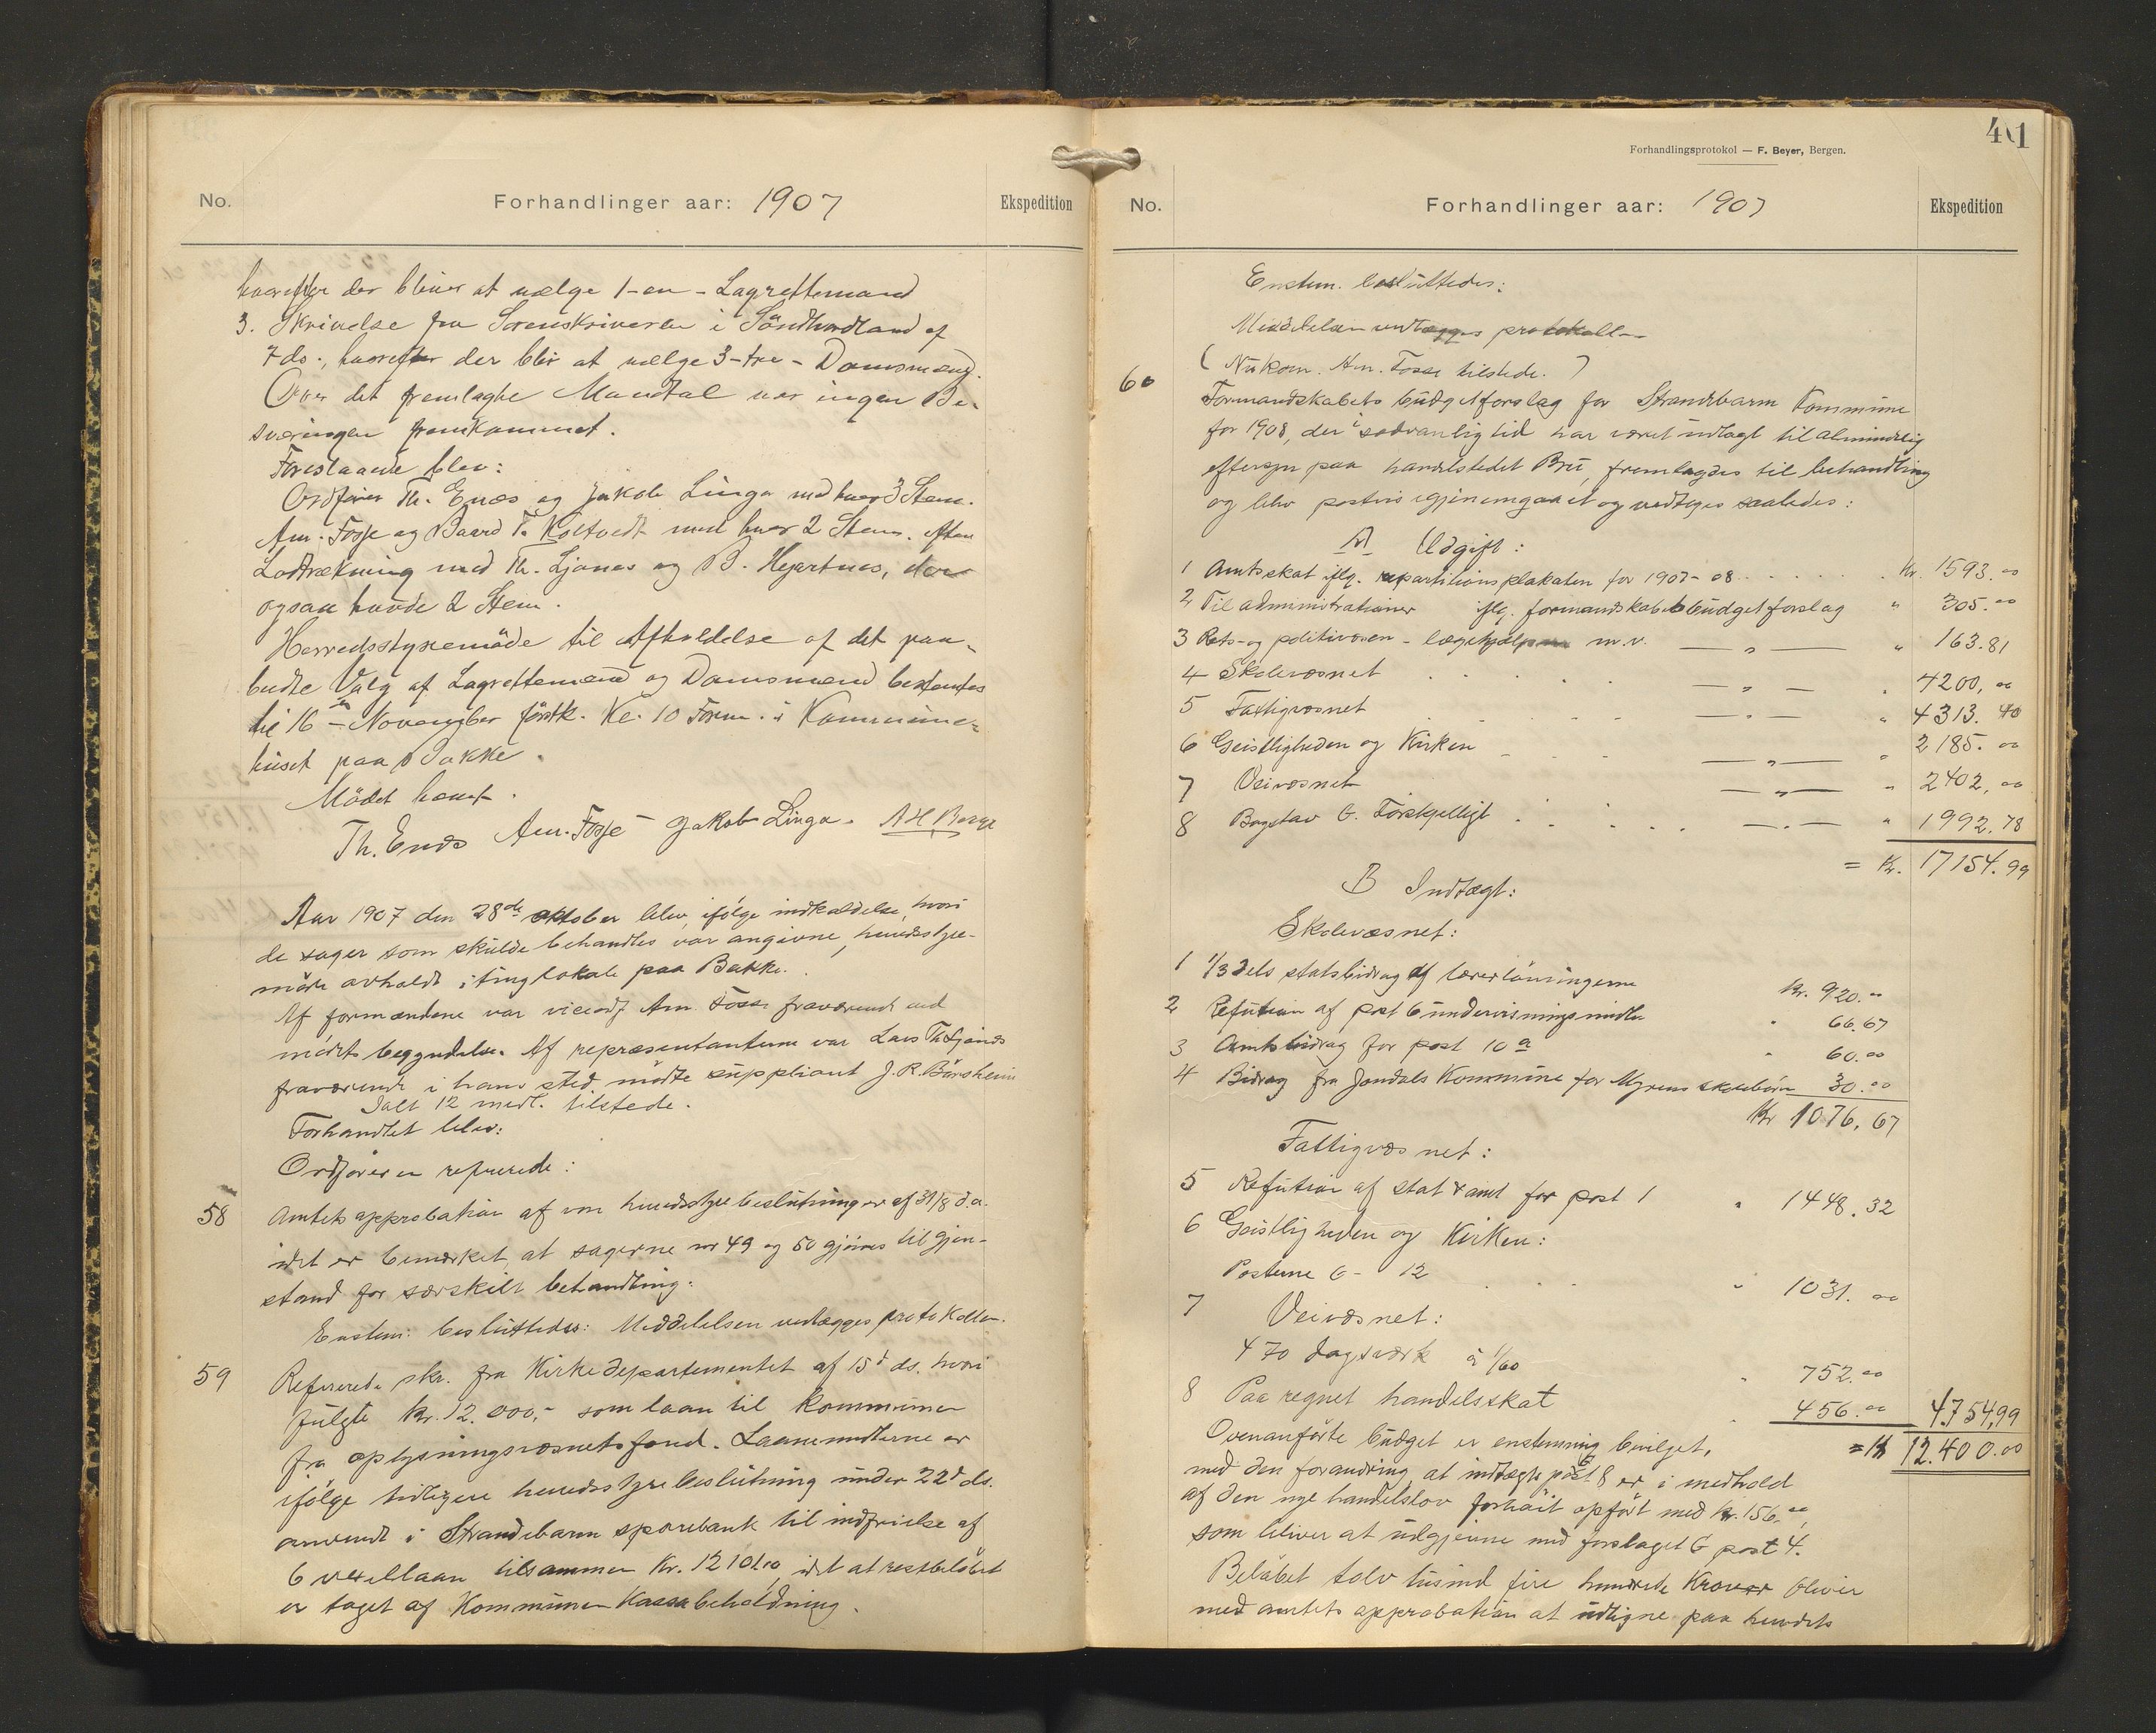 No.
Forhandlinger aar: 1907
Ekspedition
hvorefter der bliver at vælge 1-en-Lagrettemand
3. Skrivelse fra Sorenskriveren i Söndhordland af
7 ds., hvorefter der blir at vælge 3-tre-Domsmænd.
Over det fremlagte Mandtal var ingen Be-
sværinger fremkommet.
Foreslaaede blev:
Ordfører Th. Enæs og Jakob Linga med hver 3 Stem.
Am. Fosse og Baard T. Koltvedt med hver 2 Stem. efter
Lodtrækning med Th. Ljones og B. Hejartnes, der
ogsaa havde 2 Stem.
Herredsstyremöde til Afholdelse af det paa-
budte Valg af Lagrettemænd og Domsmænd bestemtes
til 16 de November förstk. Kl. 10 Form. i Kommune-
huset paa Bakke.
Mödet hævet.
Th. Enæs Am. Fosse Jakob Linga. A H Berge
Aar 1907 den 28de oktober blev, ifölge indkaldelse, hvori
de sager som skulde behandles var angivne, herredsstyre-
möde avholdt i tinglokale paa Bakke.
Af formændene var viceordf Am. Fosse fraværende ved
mödets begyndelse. Af repræsentanterne var Lars Th Ljones
fraværende i hans sted mödte suppliant J. R. Börsheim
Ialt 12 medl. tilstede.
Forhandlet blev:
Ordföreren refererede:
58 Amtets approbation af von herredsstyrebeslutninger af 31/8 d.a.
idet er bemærket, at sagerne nr 49 og 50 gjöres til gjen-
stand for særskilt behandling.
Enstem: besluttedes: Meddelelsen vedlægges protokollen.
59 Refererede skr. fra Kirkedepartementet af 15 d ds. hvori
fulgte kr. 12.000,- som laan til kommunen
fra oplysningsvæsnets fond. Laanemidlerne er
ifölge tidligere herredsstyrebeslutning under 22 d ds.
anvendt i Strandebarm sparebank til indfrielse af
6 vexellaan tilsammen Kr. 12101.10, idet at restbelöbet
er taget af Kommunen Kassabeholdning.
401
Forhandlingsprotokol — F. Beyer, Bergen.
No.
Forhandlinger aar: 1907
Ekspedition
Enstem. besluttedes:
Meddelelsen vedlægges protokollen
( Nukom. Am. Fosse tilstede. )
60 Formandskabets budgetforslag for Strandebarm Kommune
for 1908, der i sedvanlig tid har været udlagt til almindelig
eftersyn paa handelstedet Bru, fremlagdes til behandling
og blev postvis igjenemgaaet og vedtoges saaledes:
A Udgift:
1 Amtsskat iflg. repartitionsplakaten for 1907-08 . . . . Kr. 1593.00
2 Til administrationer iflg. formandskabets budgetforslag " 305.00
3 Rets- og politivæsen - lægehjælp m.v. — " — " 163.81
4 Skolevæsnet . . . . — " — " 4200,00
5 Fattigvæsnet . . . . — " — " 4313.40
6 Geistligheden og Kirken — " — " 2185.00
7 Veivæsnet — " — " 2402,00
8 Bogstav G. Forskjelligt . . . . — " — " 1992.78
= Kr. 17154.99
B Indtægt:
Skolevæsnet:
1 1/3 dels statsbidrag af lærerlönningerne Kr. 920.00
2 Refusion af post 6 undervisningsmidler " 66.67
3 Amtsbidrag for post 10 a " 60.00
4 Bidrag fra Jondals Kommune for Myrens skolebörn 30.00
Kr 1076,67
Fattigvæsnet:
5 Refusion af stat & amt for post 1 " 1448.32
6 Geistligheden og Kirken:
Posterne 6 - 12 . . . " 1031.00
7 Veivæsnet:
470 dagsværk à 1/60 " 752.00
8 Paaregnet handelsskat " 456.00 4754,99
= Kr 12.400.00
Ovenanförte budget er enstemmig bevilget,
med den forandring, at indtægts post 8 er i medhold
af den nye handelslov forhöit opfört med kr. 156.00,
som bliver at udgjevne med forslaget G post 4.
Belöbet tolv tusind fire hundrede Kroner bliver
med amtets approbation at udligne paa herredets